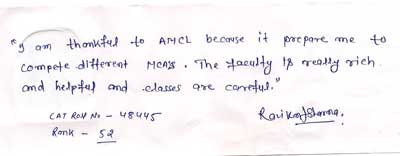 "I am thankful to AMCL because it prepare me to
compete different MCA's. The faculty is really rich
and helpful and classes are careful."
CAT Roll No - 48445
Rank - 52